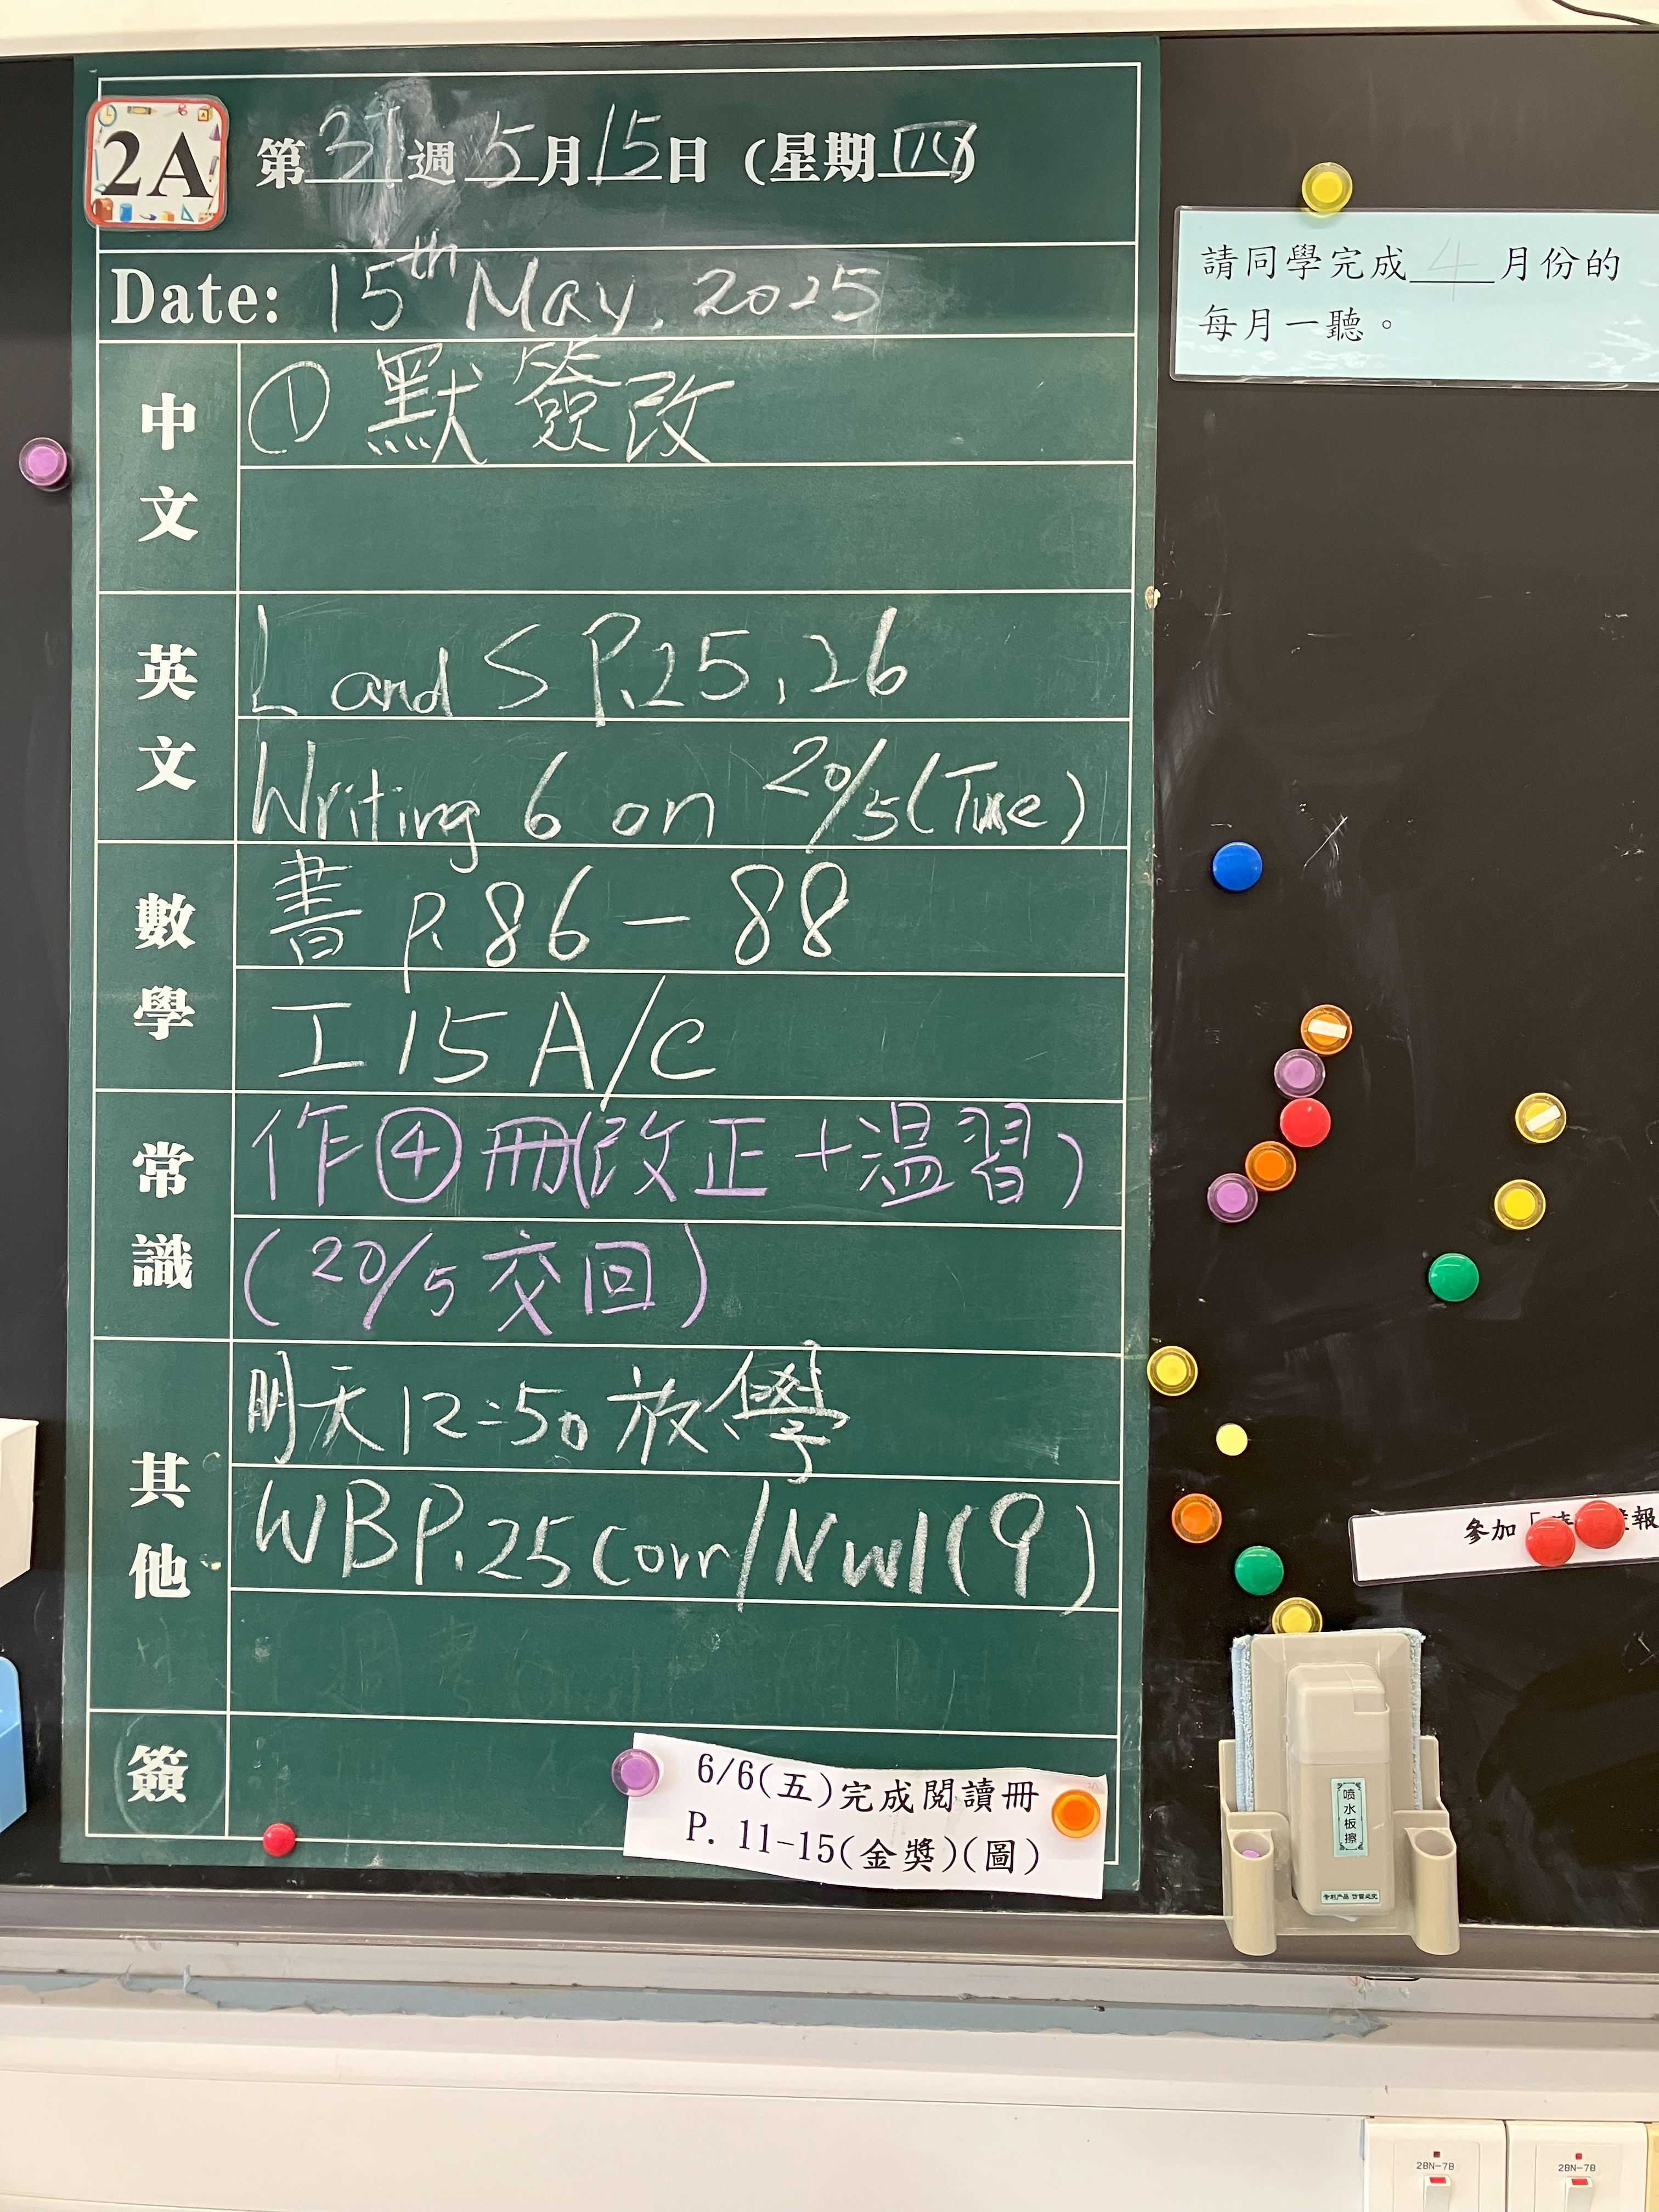 2A
第37週5月15日(星期四)
Date: 15th May, 2025
中文
① 默簽改
英文
L and S P.25,26
Writing 6 on 20/5(Tue)
數學
書 P. 86-88
工15 A/C
常識
作④冊(改正+温習)
(20/5交回)
其他
明天12:50放學
WB P.25 Corr/NWL(9)
簽
6/6(五)完成閱讀冊
P. 11-15(金獎)(圖)
請同學完成 4 月份的
每月一聽。
參加「
報
喷水板擦
2BN-7B
2BN-7B